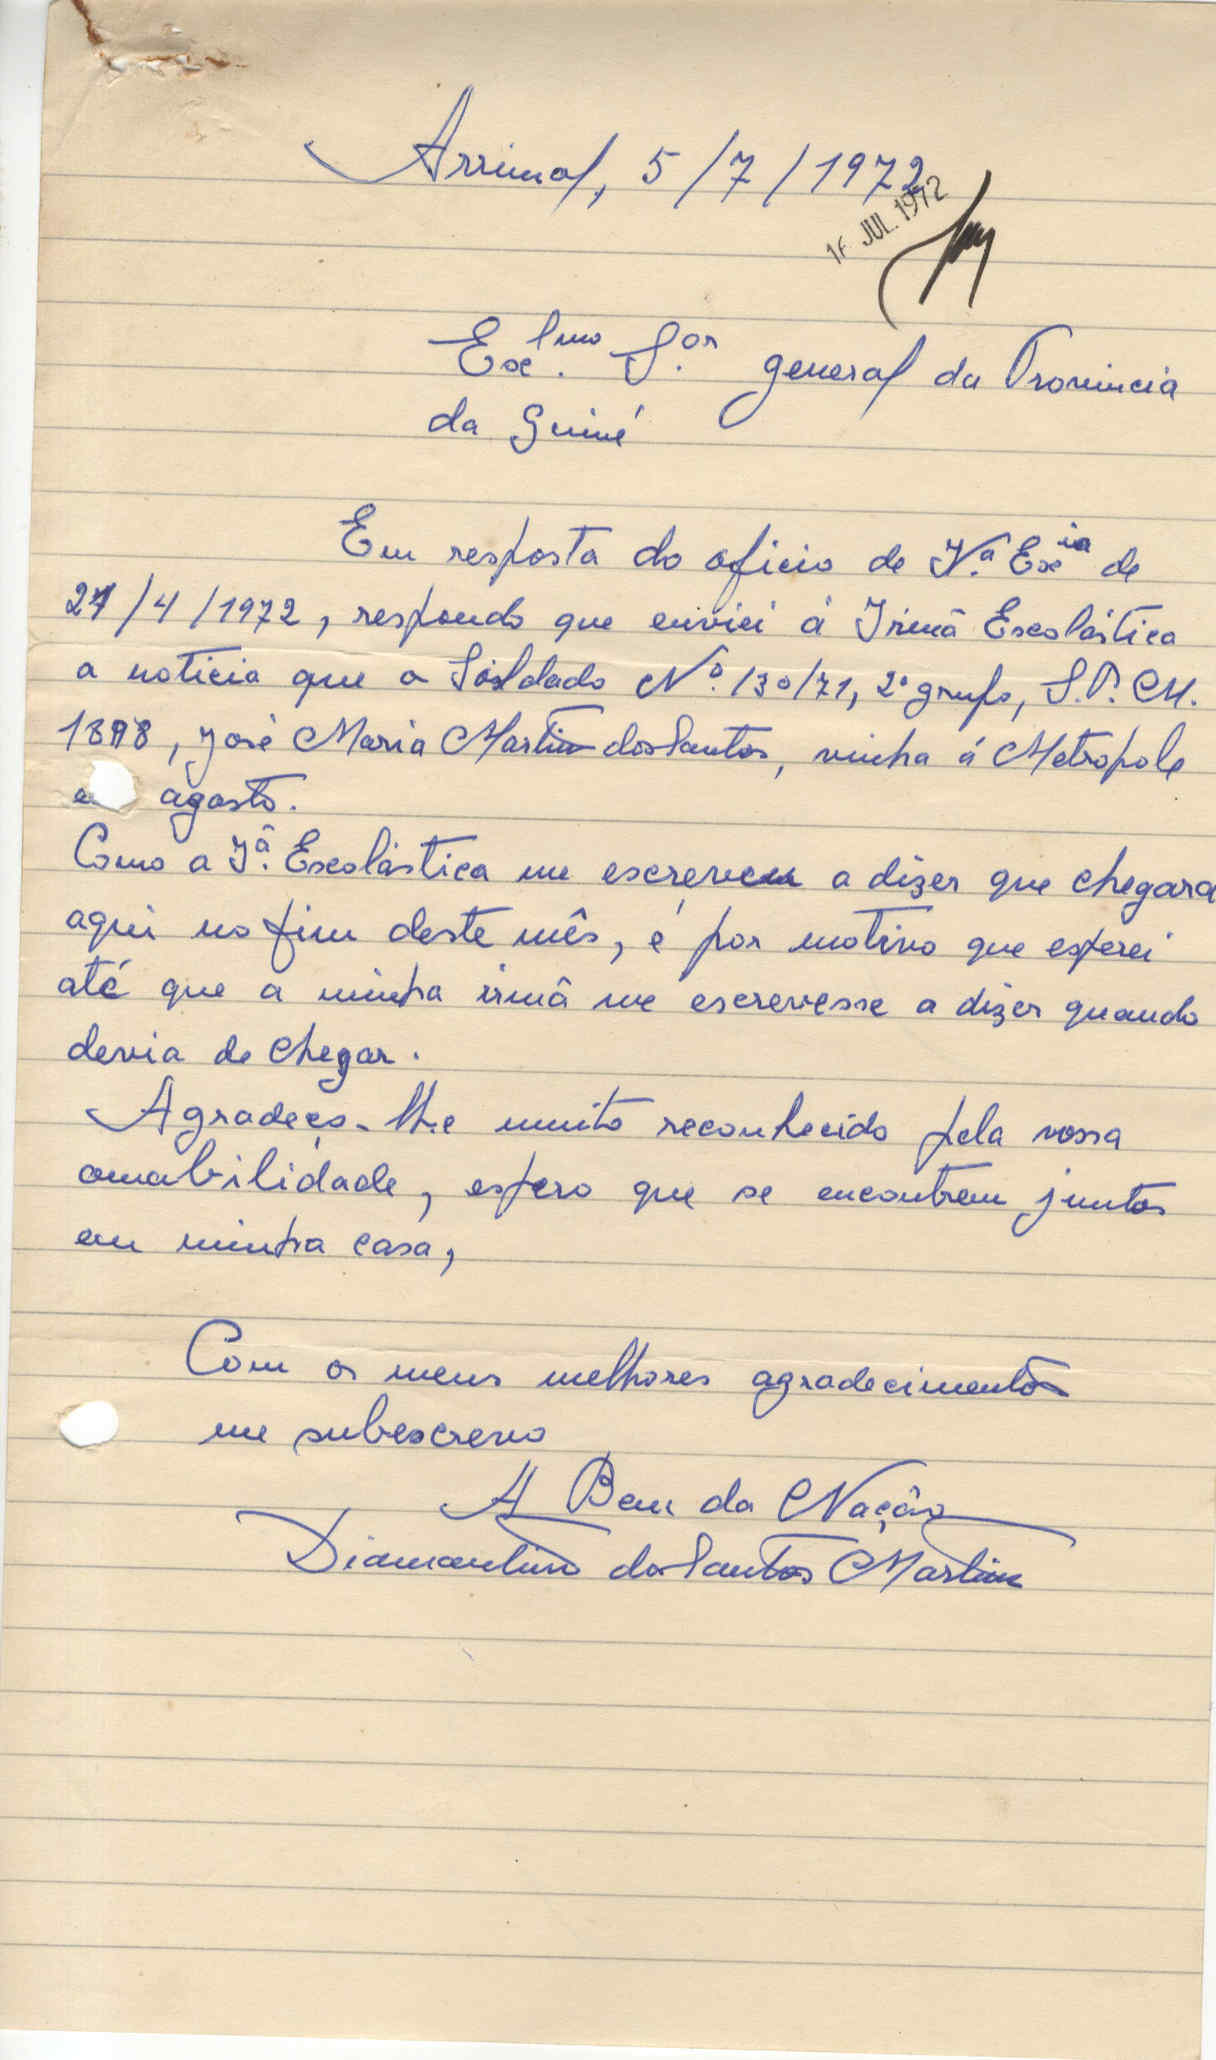 Arrimal, 5/7/1972
JUL. 1972
Exlmo. S.or general da Provincia
da Guiné
Em resposta do oficio de V.ª Exia de
/4/1972, respondo que enviei á Irmã Escolástica
a noticia que o Soldado Nº. 130/71, 2º grupo, S.P.M.
18 8, José Maria Martins dos Santos, vinha á Metropole
agosto.
Como a Iª. Escolástica me escreveu a dizer que chegara
aqui no fim deste mês, é por motivo que esperei
até que a minha irmã me escrevesse a dizer quando
devia de chegar.
Agradeço-lhe muito reconhecido pela vossa
amabilidade, espero que se encontrem juntos
em minha casa,
Com os meus melhores agradecimentos
me subescrevo
A Bem da Nação
Diamantino dos Santos Martins